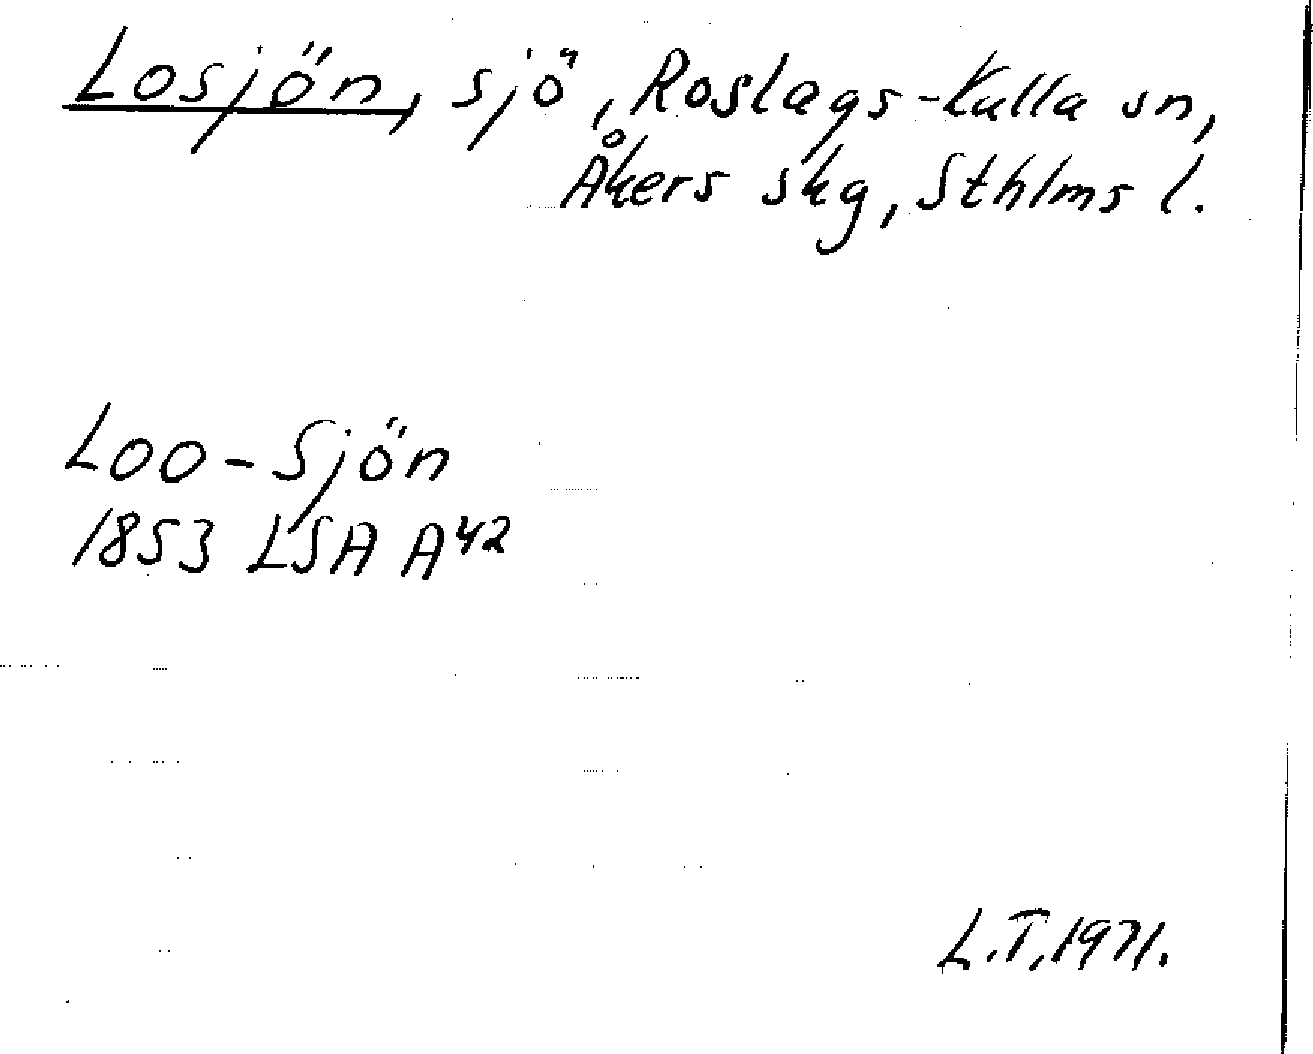 Losjön, sjö, Roslags-Kulla sn,
Åkers skg, Sthlms l.
Loo-Sjön
1853 LSA A42
L.T, 1971.